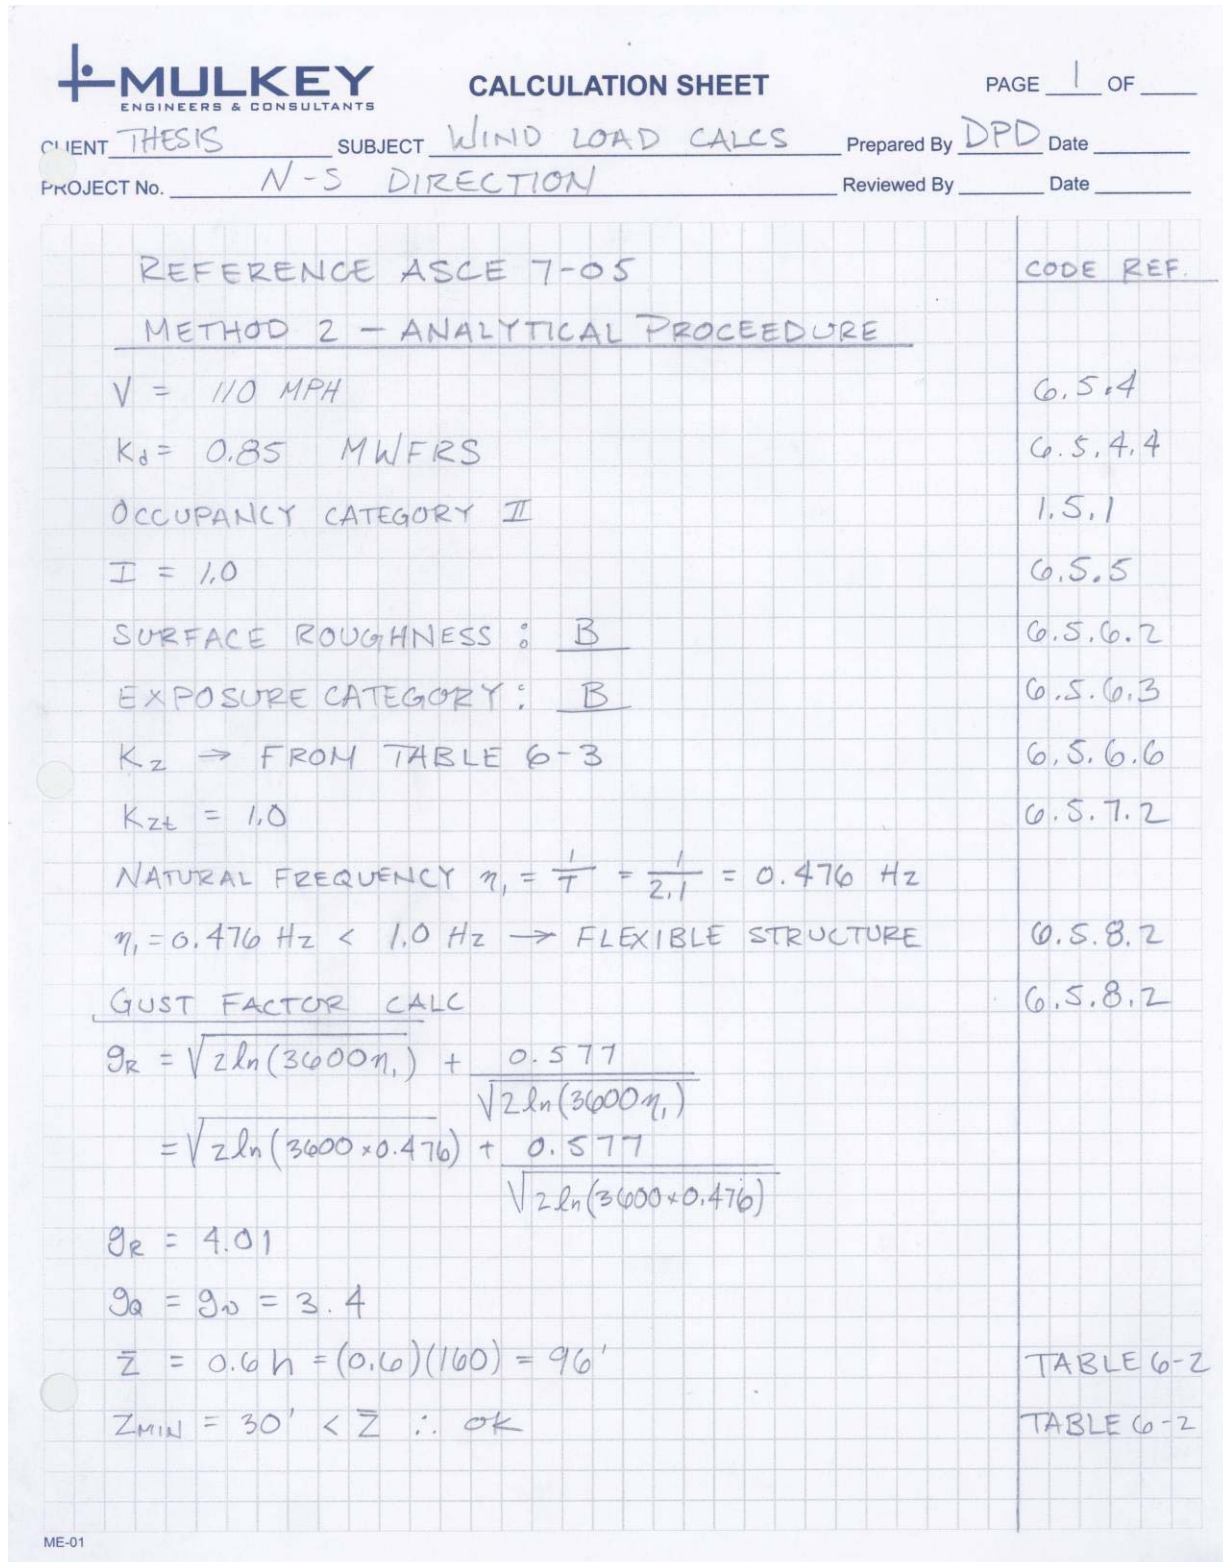 MULKEY
ENGINEERS & CONSULTANTS
CALCULATION SHEET
PAGE 1 OF
CLIENT THESIS SUBJECT WIND LOAD CALCS Prepared By DPD Date
PROJECT No. N-S DIRECTION Reviewed By Date
REFERENCE ASCE 7-05 CODE REF.
METHOD 2 - ANALYTICAL PROCEEDURE
V = 110 MPH 6.5.4
Kd = 0.85 MWFRS 6.5.4.4
OCCUPANCY CATEGORY II 1.5.1
I = 1.0 6.5.5
SURFACE ROUGHNESS : B 6.5.6.2
EXPOSURE CATEGORY : B 6.5.6.3
Kz → FROM TABLE 6-3 6.5.6.6
Kzt = 1.0 6.5.7.2
NATURAL FREQUENCY η₁ = 1/T = 1/2.1 = 0.476 Hz
η₁ = 0.476 Hz < 1.0 Hz → FLEXIBLE STRUCTURE 6.5.8.2
GUST FACTOR CALC 6.5.8.2
gR = √2 ln(3600η₁) + 0.577 / √2 ln(3600η₁)
= √2 ln(3600×0.476) + 0.577 / √2 ln(3600×0.476)
gR = 4.01
gQ = gv = 3.4
z̄ = 0.6h = (0.6)(160) = 96' TABLE 6-2
ZMIN = 30' < z̄ ∴ ok TABLE 6-2
ME-01